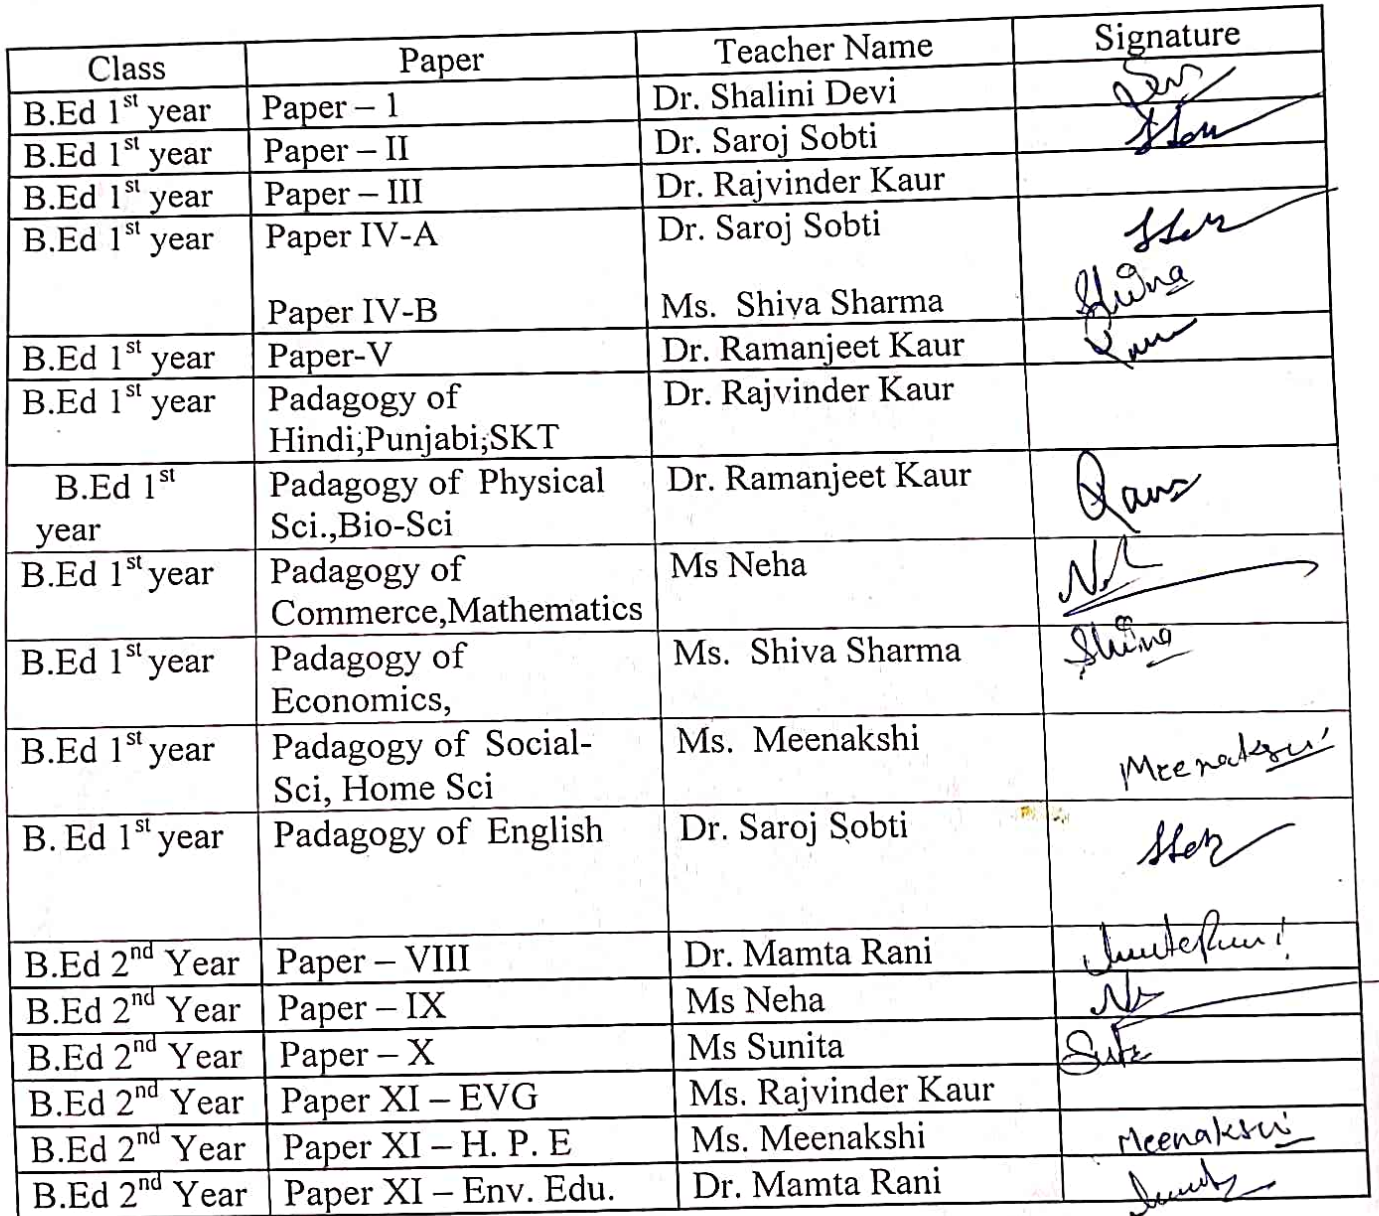 Class Paper Teacher Name Signature
B.Ed 1st year Paper – 1 Dr. Shalini Devi
B.Ed 1st year Paper – II Dr. Saroj Sobti
B.Ed 1st year Paper – III Dr. Rajvinder Kaur
B.Ed 1st year Paper IV-A Dr. Saroj Sobti
Paper IV-B Ms. Shiva Sharma
B.Ed 1st year Paper-V Dr. Ramanjeet Kaur
B.Ed 1st year Padagogy of Dr. Rajvinder Kaur
Hindi;Punjabi;SKT
B.Ed 1st Padagogy of Physical Dr. Ramanjeet Kaur
year Sci.,Bio-Sci
B.Ed 1st year Padagogy of Ms Neha
Commerce,Mathematics
B.Ed 1st year Padagogy of Ms. Shiva Sharma
Economics,
B.Ed 1st year Padagogy of Social- Ms. Meenakshi Meenakshi
Sci, Home Sci
B. Ed 1st year Padagogy of English Dr. Saroj Sobti
B.Ed 2nd Year Paper – VIII Dr. Mamta Rani
B.Ed 2nd Year Paper – IX Ms Neha
B.Ed 2nd Year Paper – X Ms Sunita
B.Ed 2nd Year Paper XI – EVG Ms. Rajvinder Kaur
B.Ed 2nd Year Paper XI – H. P. E Ms. Meenakshi Meenakshi
B.Ed 2nd Year Paper XI – Env. Edu. Dr. Mamta Rani